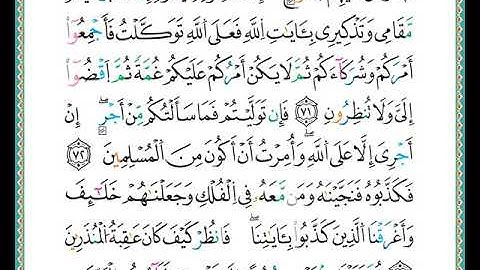 مَّقَامِي وَتَذْكِيرِي بِـَٔايَٰتِ ٱللَّهِ فَعَلَى ٱللَّهِ تَوَكَّلْتُ فَأَجْمِعُوٓا۟
أَمْرَكُمْ وَشُرَكَآءَكُمْ ثُمَّ لَا يَكُنْ أَمْرُكُمْ عَلَيْكُمْ غُمَّةً ثُمَّ ٱقْضُوٓا۟
إِلَىَّ وَلَا تُنظِرُونِ ٧١ فَإِن تَوَلَّيْتُمْ فَمَا سَأَلْتُكُم مِّنْ أَجْرٍ ۖ إِنْ
أَجْرِىَ إِلَّا عَلَى ٱللَّهِ ۖ وَأُمِرْتُ أَنْ أَكُونَ مِنَ ٱلْمُسْلِمِينَ ٧٢
فَكَذَّبُوهُ فَنَجَّيْنَٰهُ وَمَن مَّعَهُۥ فِى ٱلْفُلْكِ وَجَعَلْنَٰهُمْ خَلَٰٓئِفَ
وَأَغْرَقْنَا ٱلَّذِينَ كَذَّبُوا۟ بِـَٔايَٰتِنَا ۖ فَٱنظُرْ كَيْفَ كَانَ عَٰقِبَةُ ٱلْمُنذَرِينَ